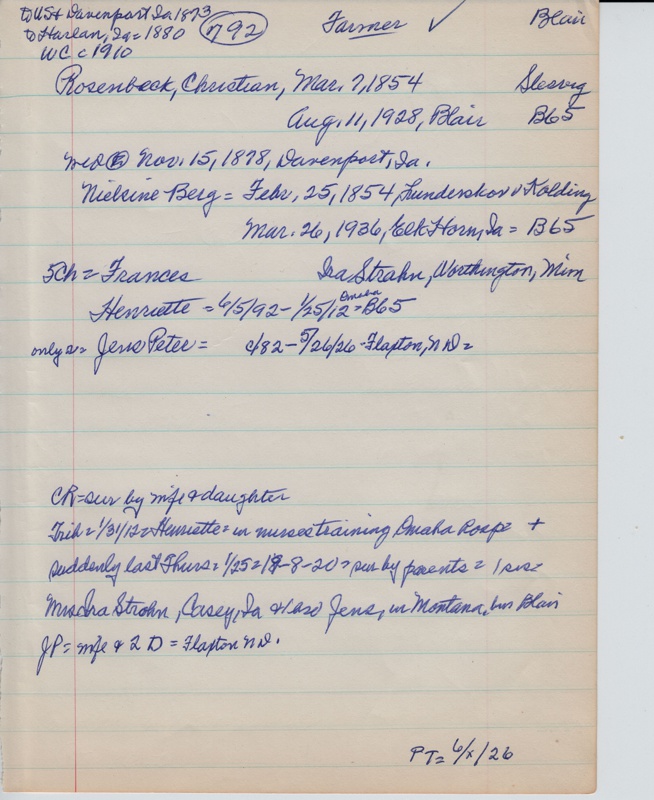 to USA Davenport Ia 1873
to Harlan, Ia = 1880
WC c 1910
792
Farmer ✓
Blair
Rosenbeck, Christian, Mar. 7, 1854 Slesvig
Aug. 11, 1928, Blair B65
wed Nov. 15, 1878, Davenport, Ia.
Nielsine Berg = Febr. 25, 1854, Lunderskov v Kolding
Mar. 26, 1936, Elk Horn, Ia = B65
5Ch = Frances Ira Strahn, Worthington, Minn
Henriette = 6/5/92 - 1/25/12 = Omaha B65
only s = Jens Peter = c/82 - 5/26/26 - Flaxton, ND =
CR = sur by wife & daughter
Trib = 1/31/12 = Henriette = in nurses training Omaha Hosp = +
suddenly last Thurs = 1/25 = 19-8-20 = sur by parents = 1 sis =
Mrs Ira Strohn, Casey, Ia & 1 bro Jens, in Montana, bur Blair
JP = wife & 2 D = Flaxton ND.
PT = 6/x/26